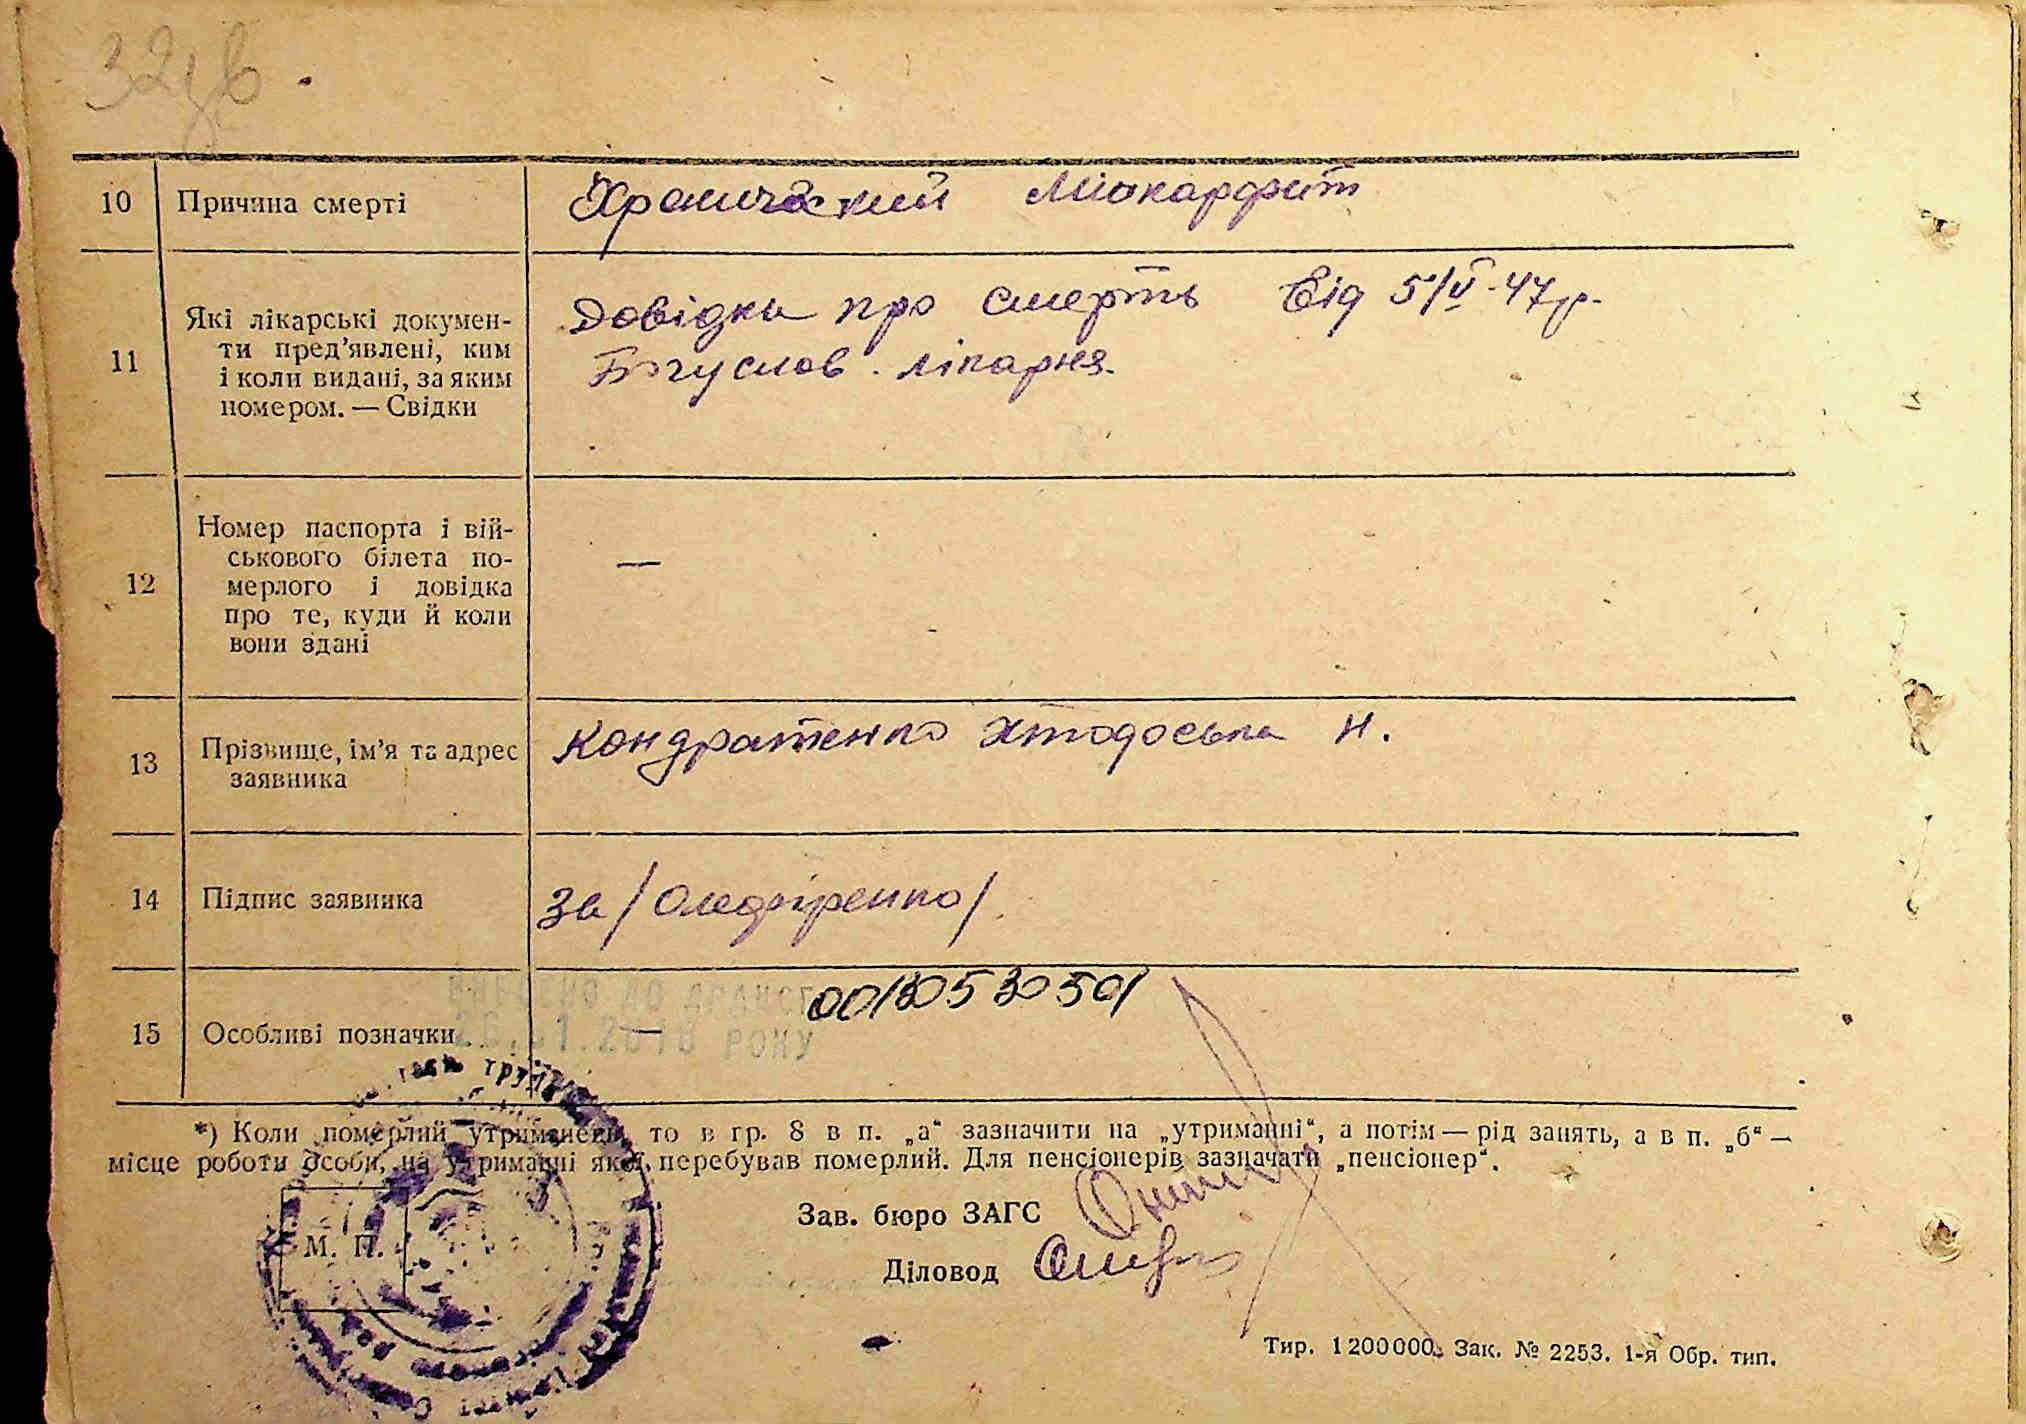 32зв
10 Причина смерті Хронический Міокардит
11 Які лікарські докумен-
ти пред’явлені, ким
і коли видані, за яким
номером. — Свідки
Довідка про смерть від 5/V-47р.
Богуслов. лікарня.
12 Номер паспорта і вій-
ськового білета по-
мерлого і довідка
про те, куди й коли
вони здані
—
13 Прізвище, ім’я та адрес
заявника
Кондратенко Хтодоська Н.
14 Підпис заявника За /Олефіренко/
ВНЕСЕНО ДО
00130530501
15 Особливі позначки —
РОКУ
*) Коли померлий утриманець, то в гр. 8 в п. „а“ зазначити на „утриманні“, а потім — рід занять, а в п. „б“ —
місце роботи особи, на утриманні якої перебував померлий. Для пенсіонерів зазначати „пенсіонер“.
Зав. бюро ЗАГС
М. П.
Діловод
Тир. 1200000. Зак. № 2253. 1-я Обр. тип.